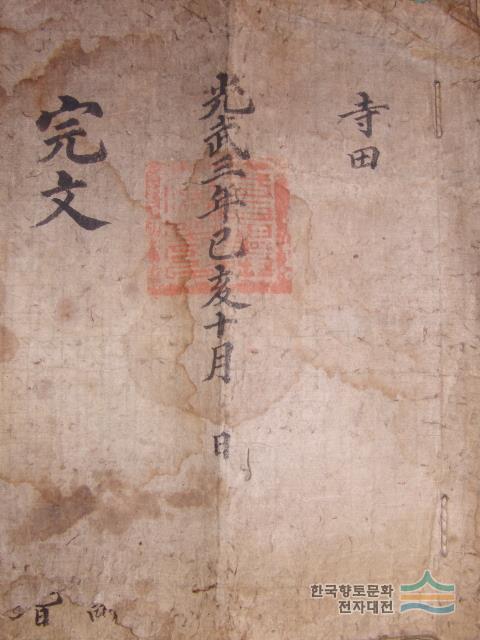 寺田
光武三年己亥十月 日
完文
한국향토문화
전자대전